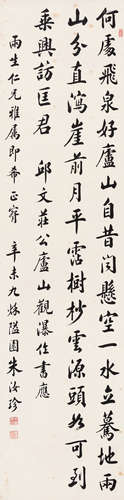 何處飛泉好廬山自昔聞懸空一水立驀地兩
山分直瀉崖前月平霑樹杪雲源頭如可到
乘興訪匡君 邱文莊公廬山觀瀑佳書應
雨生仁兄雅屬即希正字 辛未九秋隘園朱汝珍